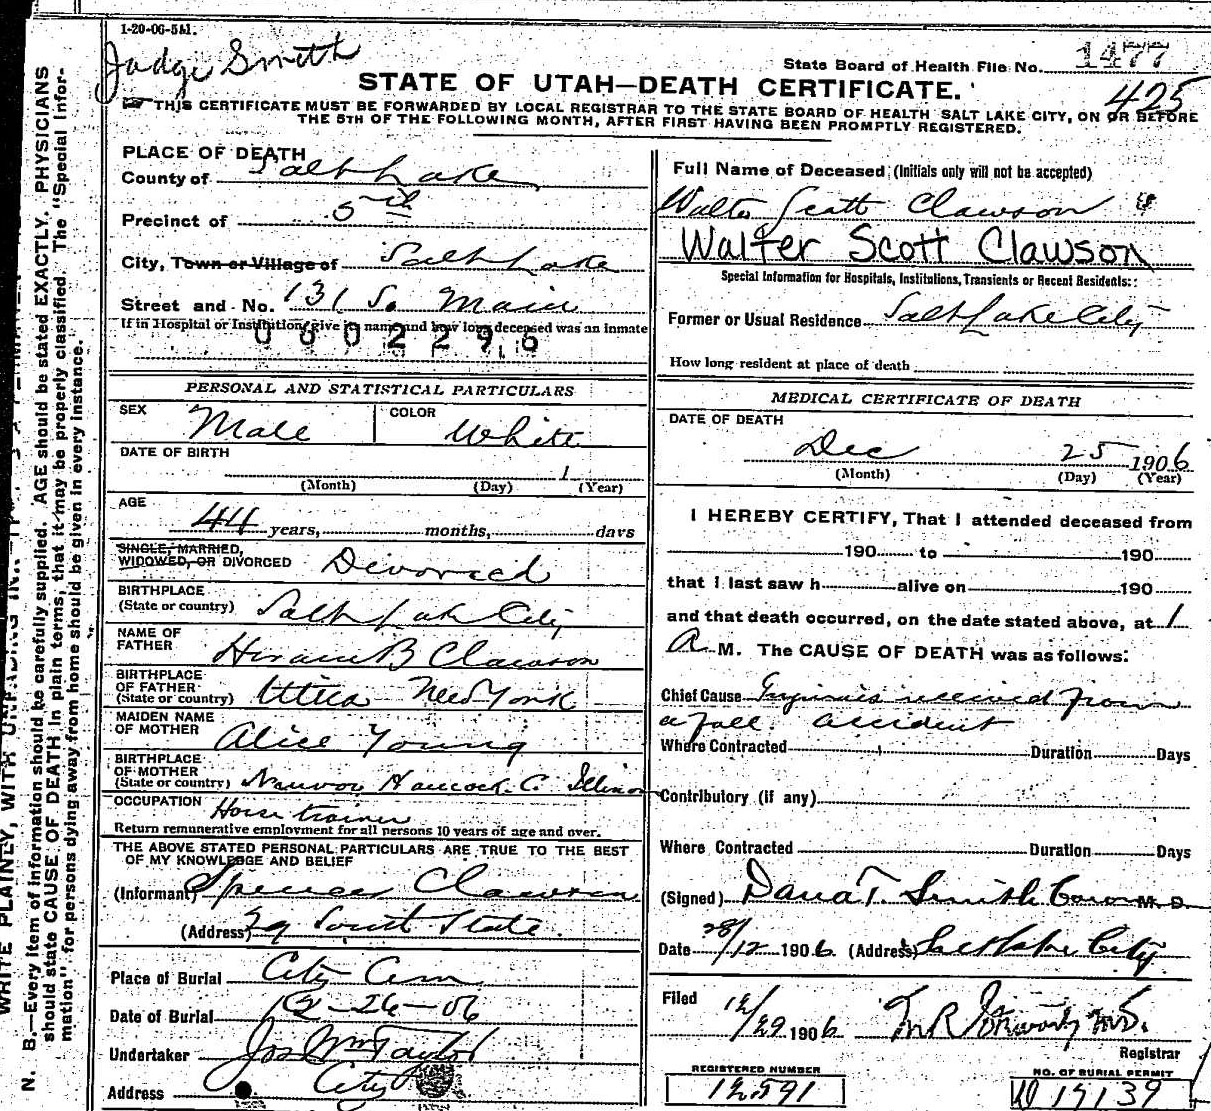 1-20-06-5M.
Judge Smith
State Board of Health File No. 1477
STATE OF UTAH—DEATH CERTIFICATE.
425
THIS CERTIFICATE MUST BE FORWARDED BY LOCAL REGISTRAR TO THE STATE BOARD OF HEALTH SALT LAKE CITY, ON OR BEFORE
THE 5TH OF THE FOLLOWING MONTH, AFTER FIRST HAVING BEEN PROMPTLY REGISTERED.
PLACE OF DEATH
County of Salt Lake
Precinct of 5th
City, Town or Village of Salt Lake
Street and No. 131 So Main
If in Hospital or Institution, give its name and how long deceased was an inmate
0602296
PERSONAL AND STATISTICAL PARTICULARS
SEX Male COLOR White
DATE OF BIRTH
1
(Month) (Day) (Year)
AGE
44 years, months, days
SINGLE, MARRIED,
WIDOWED, OR DIVORCED Divorced
BIRTHPLACE
(State or country) Salt Lake City
NAME OF
FATHER Hiram B Clawson
BIRTHPLACE
OF FATHER
(State or country) Uttica New York
MAIDEN NAME
OF MOTHER Alice Young
BIRTHPLACE
OF MOTHER
(State or country) Nauvoo Hancock. C. Illinois
OCCUPATION Horse trainer
Return remunerative employment for all persons 10 years of age and over.
THE ABOVE STATED PERSONAL PARTICULARS ARE TRUE TO THE BEST
OF MY KNOWLEDGE AND BELIEF
(Informant) Spencer Clawson
(Address) 29 South State.
Place of Burial City Cem
Date of Burial 12-26-06
Undertaker Jos Wm Taylor
Address City
Full Name of Deceased (Initials only will not be accepted)
Walter Scott Clawson
Walter Scott Clawson
Special Information for Hospitals, Institutions, Transients or Recent Residents:
Former or Usual Residence Salt Lake City
How long resident at place of death
MEDICAL CERTIFICATE OF DEATH
DATE OF DEATH
Dec 25 1906
(Month) (Day) (Year)
I HEREBY CERTIFY, That I attended deceased from
190 to 190
that I last saw h alive on 190
and that death occurred, on the date stated above, at 1
A. M. The CAUSE OF DEATH was as follows:
Chief Cause Injuries received from
a fall. accident
Where Contracted Duration Days
Contributory (if any)
Where Contracted Duration Days
(Signed) Dana T. Smith M. D.
Date 28/12 1906 (Address) Salt Lake City
Filed 12/29 1906
Registrar
REGISTERED NUMBER
12591
NO. OF BURIAL PERMIT
D 17139
N. B.—Every item of information should be carefully supplied. AGE should be stated EXACTLY. PHYSICIANS
should state CAUSE OF DEATH in plain terms, that it may be properly classified. The "Special Infor-
mation" for persons dying away from home should be given in every instance.
WRITE PLAINLY, WITH UNFADING INK